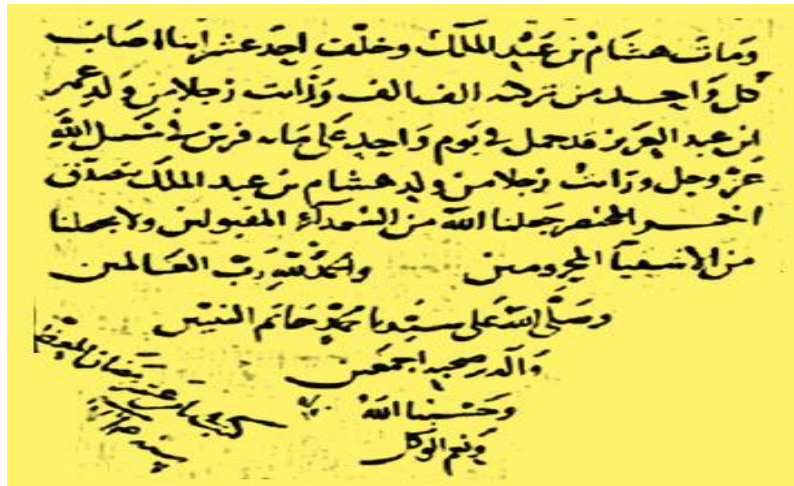 ومات هشام بن عبد الملك وخلف احد عشر ابنا اصاب
كل واحد من تركته الف الف ورأيت رجلا من ولد عمر
ابن عبد العزيز قد حمل في يوم واحد على مائة فرس في سبيل الله
عز وجل ورأيت رجلا من ولد هشام بن عبد الملك يتصدق
اخر المختصر جعلنا الله من السعدآء المقبولين ولا يجعلنا
من الاشقيآ المحرومين والحمد لله رب العالمين
وصلى الله على سيدنا محمد خاتم النبيين
واله وصحبه اجمعين
وحسبنا الله
ونعم الوكيل
كتب في عشر رمضان المعظم
سنة